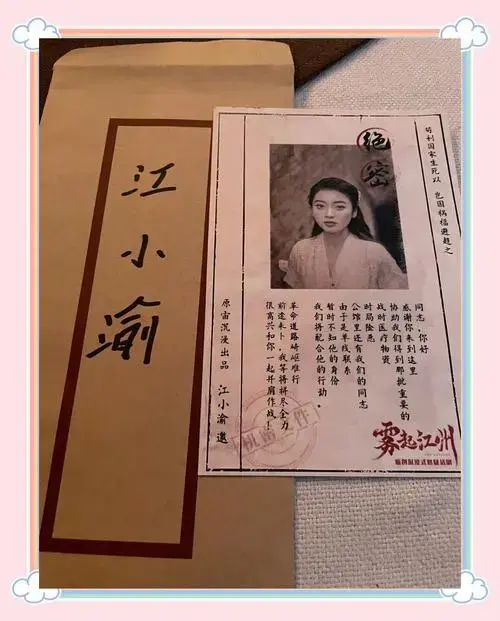 江小渝
绝密
苟利国家生死以 岂因祸福避趋之
同志,你好
感谢你来到这里
协助我们得到那批重要的
战时医疗物资
时局险恶
公馆里还有我们的同志
由于是单线联系
暂时不知他的身份
我们将配合他的行动。
革命道路崎岖难行
前途未卜,我等将拼尽全力
很高兴和你一起并肩作战!
原宙沉浸出品 江小渝邀
机密文件
雾起江州